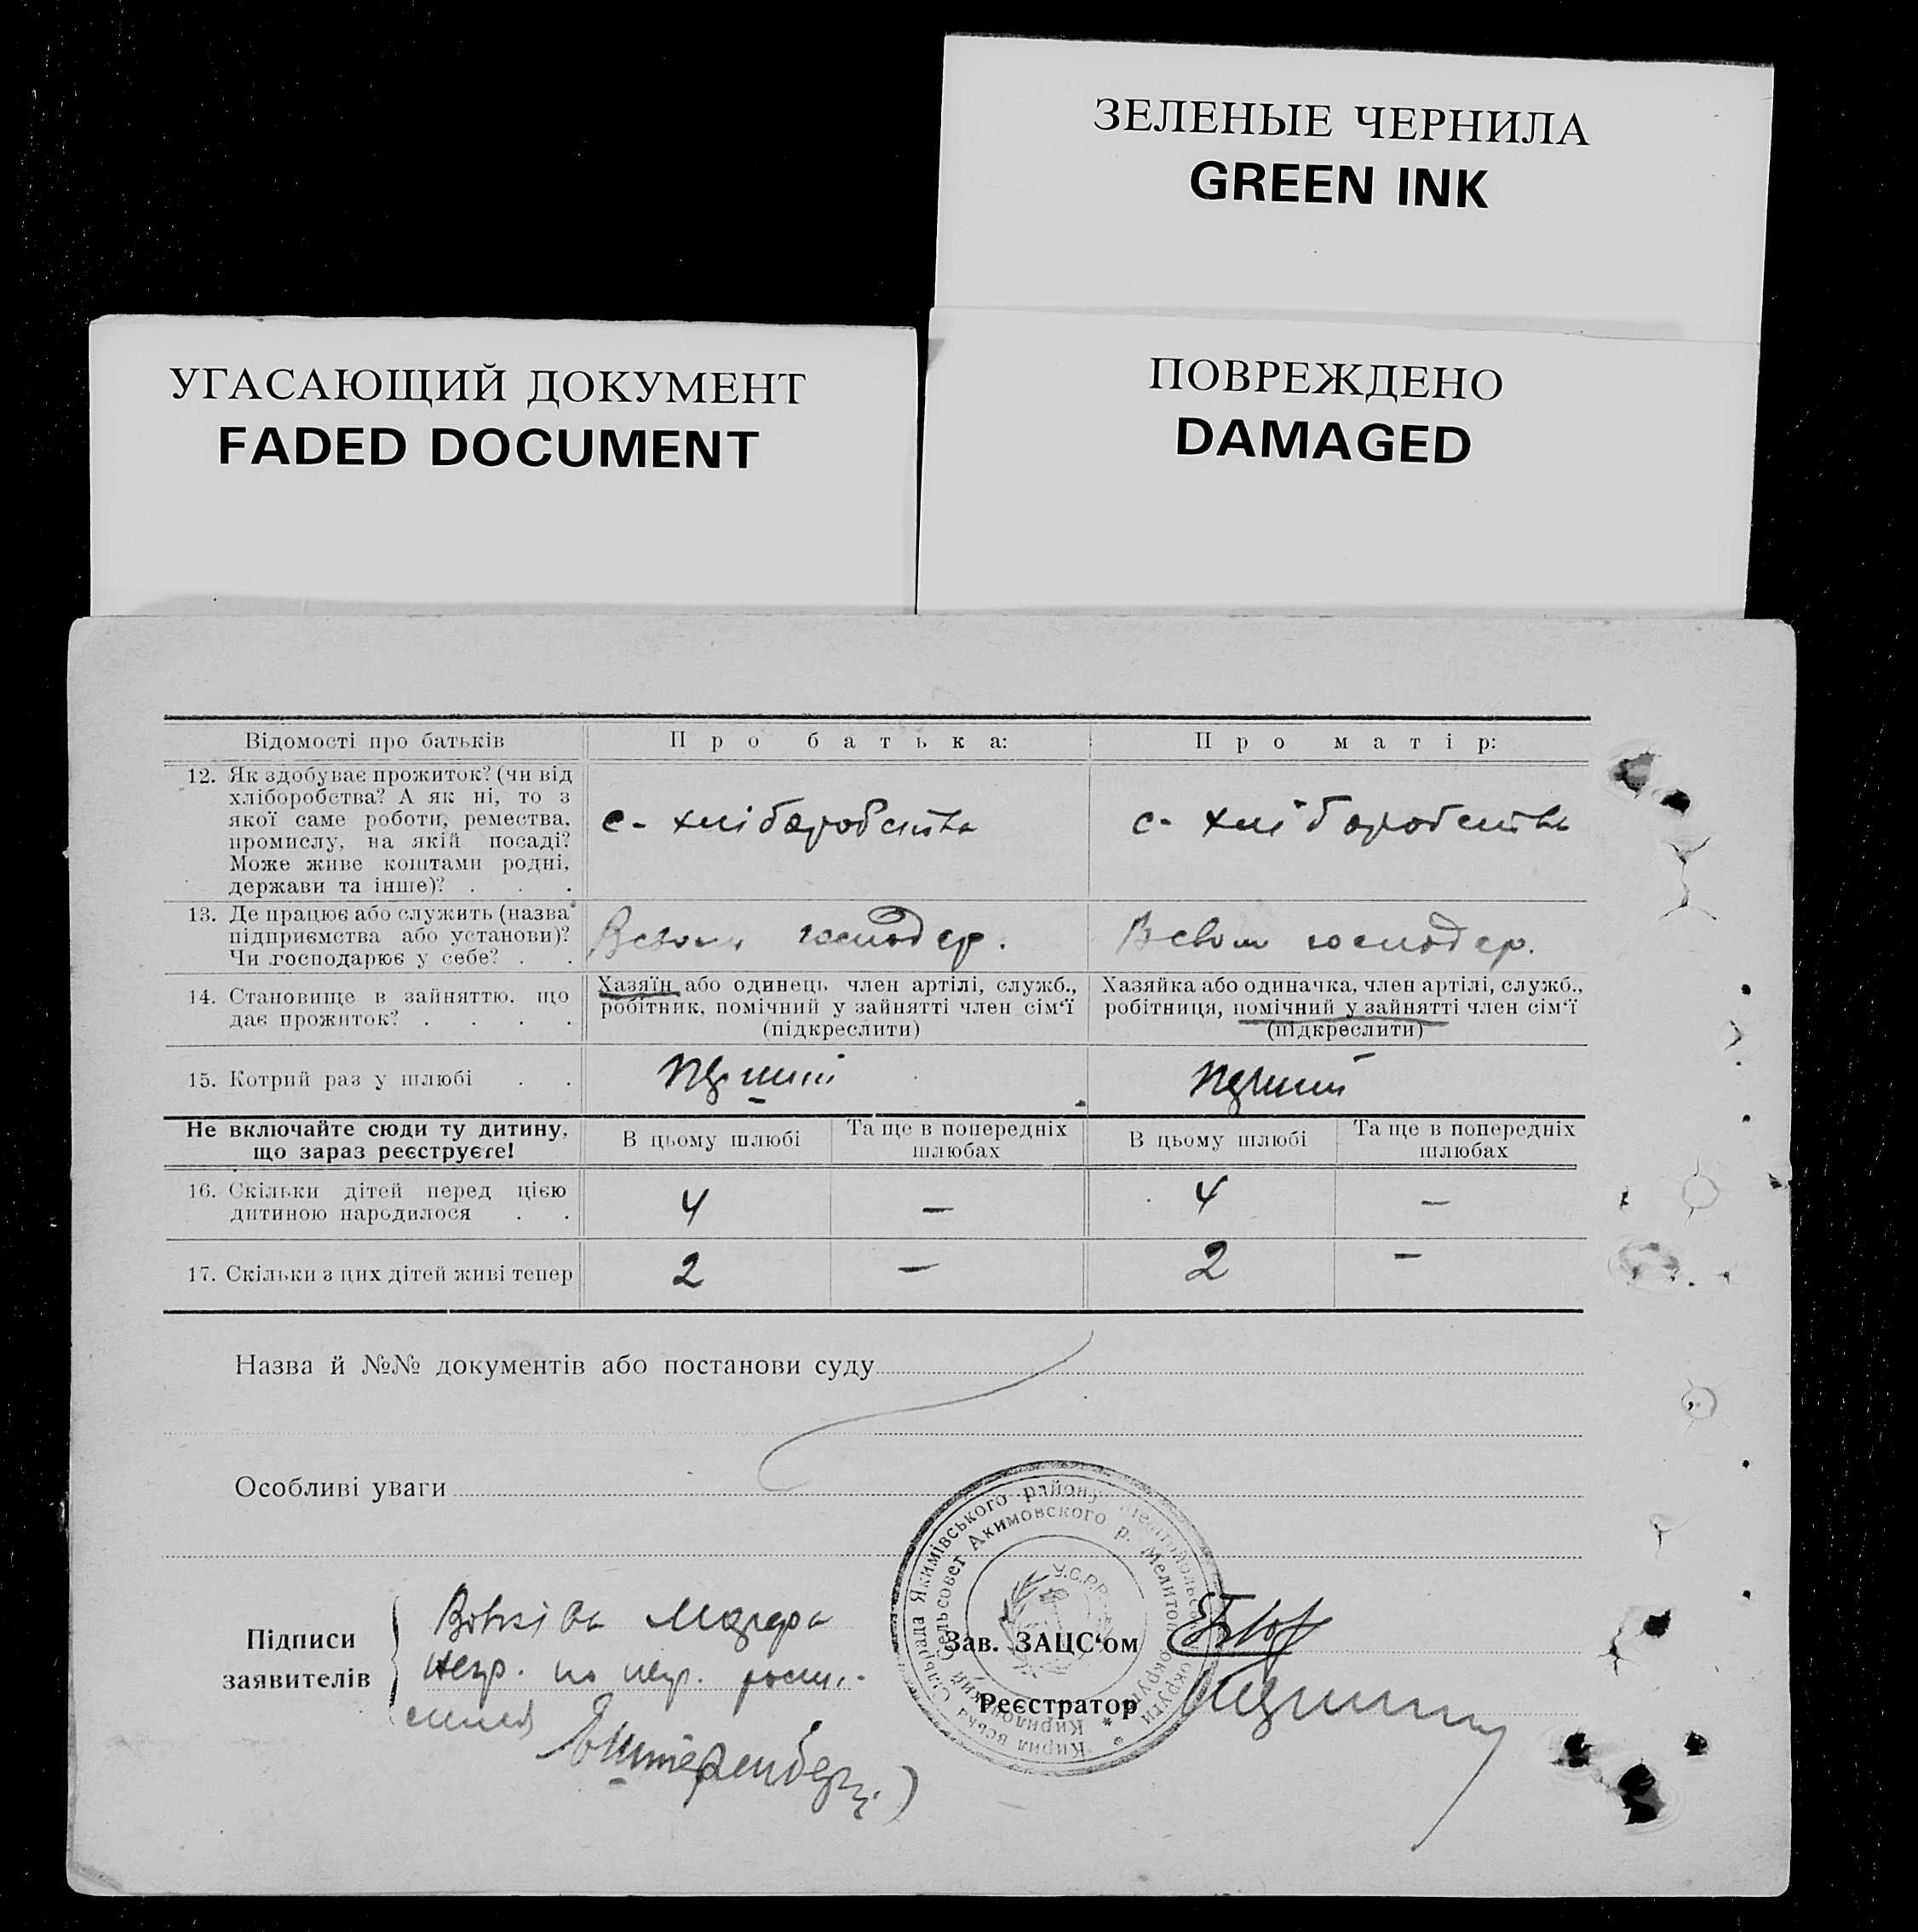 ЗЕЛЕНЫЕ ЧЕРНИЛА
GREEN INK
УГАСАЮЩИЙ ДОКУМЕНТ
FADED DOCUMENT
ПОВРЕЖДЕНО
DAMAGED
Відомості про батьків
Про батька:
Про матір:
12. Як здобуває прожиток? (чи від
хліборобства? А як ні, то з
якої саме роботи, ремества,
промислу, на якій посаді?
Може живе коштами родні,
держави та інше)? . . .
с- хліборобства
с- хліборобства
13. Де працює або служить (назва
підприємства або установи)?
Чи господарює у себе? . .
В свом господар.
В свом господар.
14. Становище в зайняттю, що
дає прожиток? . . . .
Хазяїн або одинець член артілі, служб.,
робітник, помічний у зайнятті член сім'ї
(підкреслити)
Хазяйка або одиначка, член артілі, служб.,
робітниця, помічний у зайнятті член сім'ї
(підкреслити)
15. Котрий раз у шлюбі . .
перший
перший
Не включайте сюди ту дитину,
що зараз реєструєте!
В цьому шлюбі
Та ще в попередніх
шлюбах
В цьому шлюбі
Та ще в попередніх
шлюбах
16. Скільки дітей перед цією
дитиною народилося . .
4
—
4
—
17. Скільки з цих дітей живі тепер
2
—
2
—
Назва й №№ документів або постанови суду
Особливі уваги
Підписи
заявителів
Зав. ЗАЦС'ом
Реєстратор
Кирилівська Сільрада Якимівського району Мелітопольської округи
Кириловский Сельсовет Акимовского р. Мелитоп. округи
У.С.Р.Р.